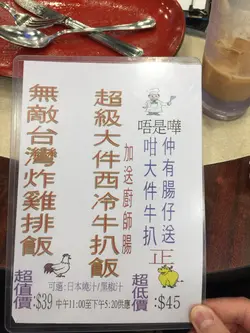 唔是嘩
咁大件牛扒
仲有腸仔送
正
超級大件西冷牛扒飯
加送廚師腸
無敵台灣炸雞排飯
可選:日本燒汁/黑椒汁
超值價:$39
中午11:00至下午5:20供應
超低價:$45